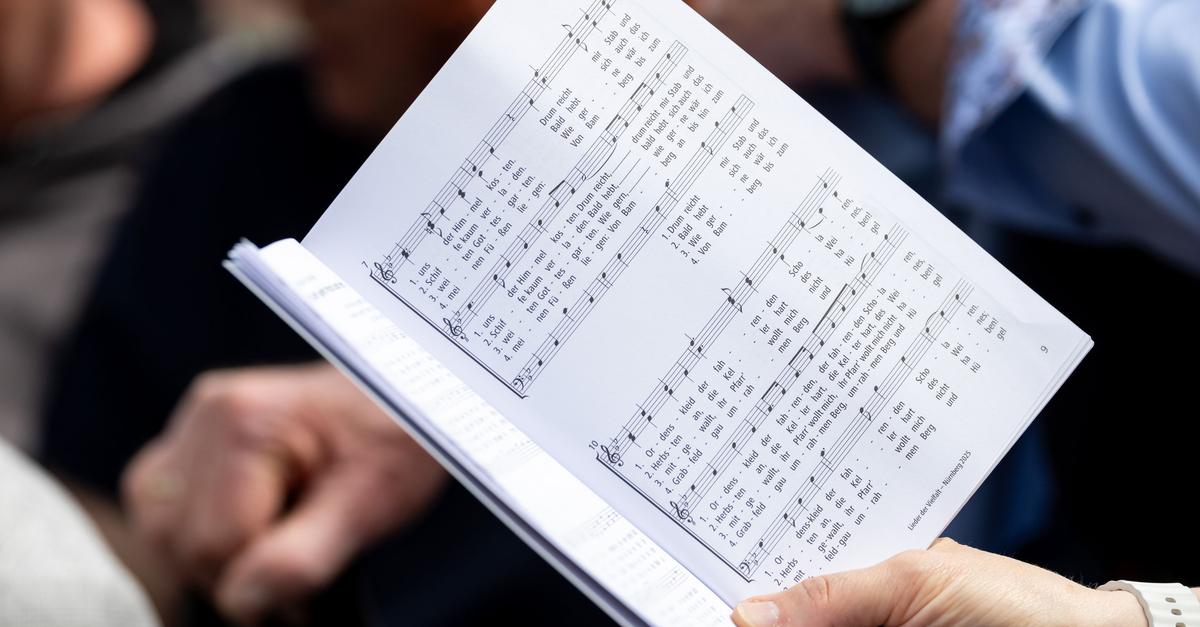 7
1. uns der Him - mel kos - ten. Drum reicht mir Stab und
2. Schif - fe kaum ver - la - den. Bald hebt sich auch das
3. wei - ten Got - tes - gar - ten. Wie ger - ne wär ich
4. mei - nen Fü - ßen lie - gen: Von Bam - berg bis zum
1. uns der Him - mel kos - ten. Drum reicht, drum reicht mir Stab und
2. Schif - fe kaum ver - la - den. Bald hebt, bald hebt sich auch das
3. wei - ten Got - tes - gar - ten. Wie gern, wie ger - ne wär ich
4. mei - nen Fü - ßen lie - gen: Von Bam - berg an bis hin zum
1. Drum reicht mir Stab und
2. Bald hebt sich auch das
3. Wie ger - ne wär ich
4. Von Bam - berg bis zum
10
1. Or - dens - kleid der fah - ren den Scho - la - ren,
2. Herbs - ten an, die Kel - ler hart des Wei - nes,
3. mit - ge - wallt, ihr Pfarr' wollt mich nicht ha - ben!
4. Grab - feld - gau um - rah - men Berg und Hü - gel
1. Or - dens - kleid der fah - ren - den, der fah - ren - den Scho - la - ren,
2. Herbs - ten an, die Kel - ter hart, die Kel - ter hart, des Wei - nes,
3. mit - ge - wallt, ihr Pfarr' wollt mich, ihr Pfarr' wollt mich nicht ha - ben!
4. Grab - feld - gau um - rah - men Berg, um - rah - men Berg und Hü - gel
1. Or - dens-kleid der fah - ren den Scho - la - ren.
2. Herbs - ten an, die Kel - ler hart des Wei - nes;
3. mit - ge-wallt, ihr Pfarr' wollt mich nicht ha - ben!
feld-gau um - rah - men Berg und Hü - gel
Lieder der Vielfalt – Nürnberg 2025
9